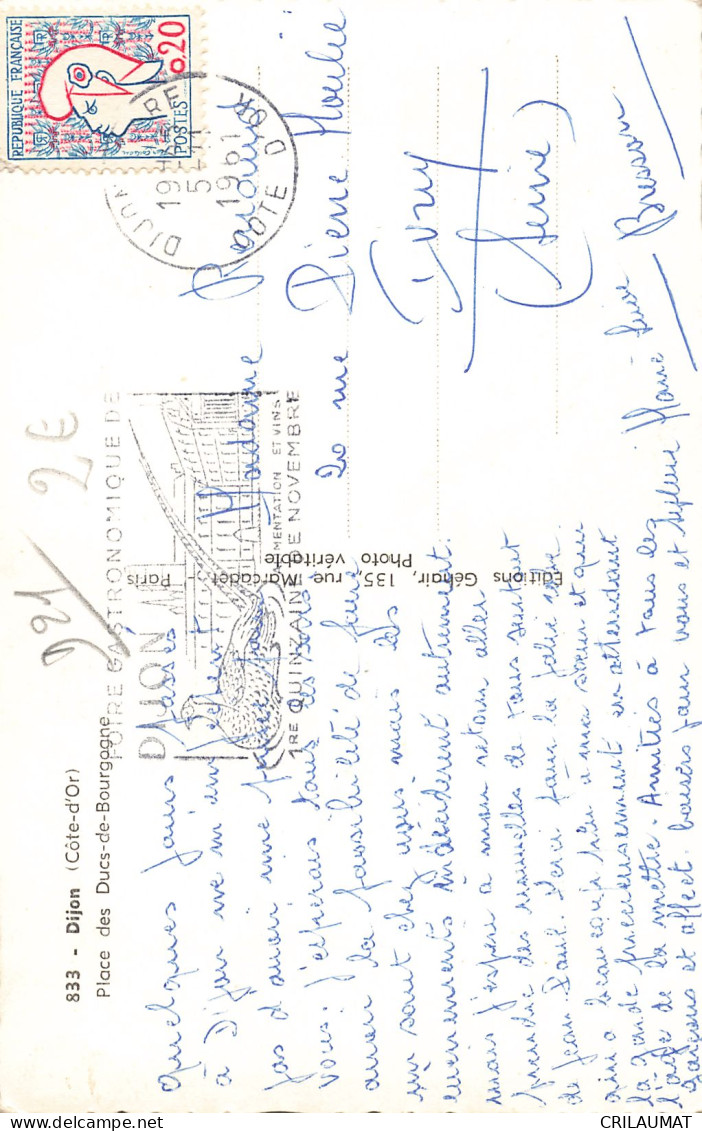 833 - Dijon (Côte-d'Or)
Place des Ducs-de-Bourgogne
Quelques jours passés
à Dijon ne m'en
pas d'avoir une pensée pour
vous. J'espérais tous les soirs
avoir la possibilité de faire
un saut chez vous, mais les
événements en décidèrent autrement.
mais j'espère à mon retour aller
prendre des nouvelles de tous surtout
de Jean-Paul. Merci pour la jolie robe
qui a beaucoup plu à ma sœur et que
la garde précieusement en attendant
l'âge de la mettre. Amitiés à tous les
garçons et affect. baisers pour vous et Sylvie
Marie Luise
Bresson
Editions Génair, 135, rue Marcadet - Paris
Photo véritable
FOIRE GASTRONOMIQUE DE
DIJON
ALIMENTATION ET VINS
1RE QUINZAINE DE NOVEMBRE
DIJON GARE COTE D'OR
19H
5-11
1961
REPUBLIQUE FRANÇAISE
0,20
POSTES
Madame
20 rue Pierre
Ivry
(Seine)
D21/
2€
CRILAUMAT